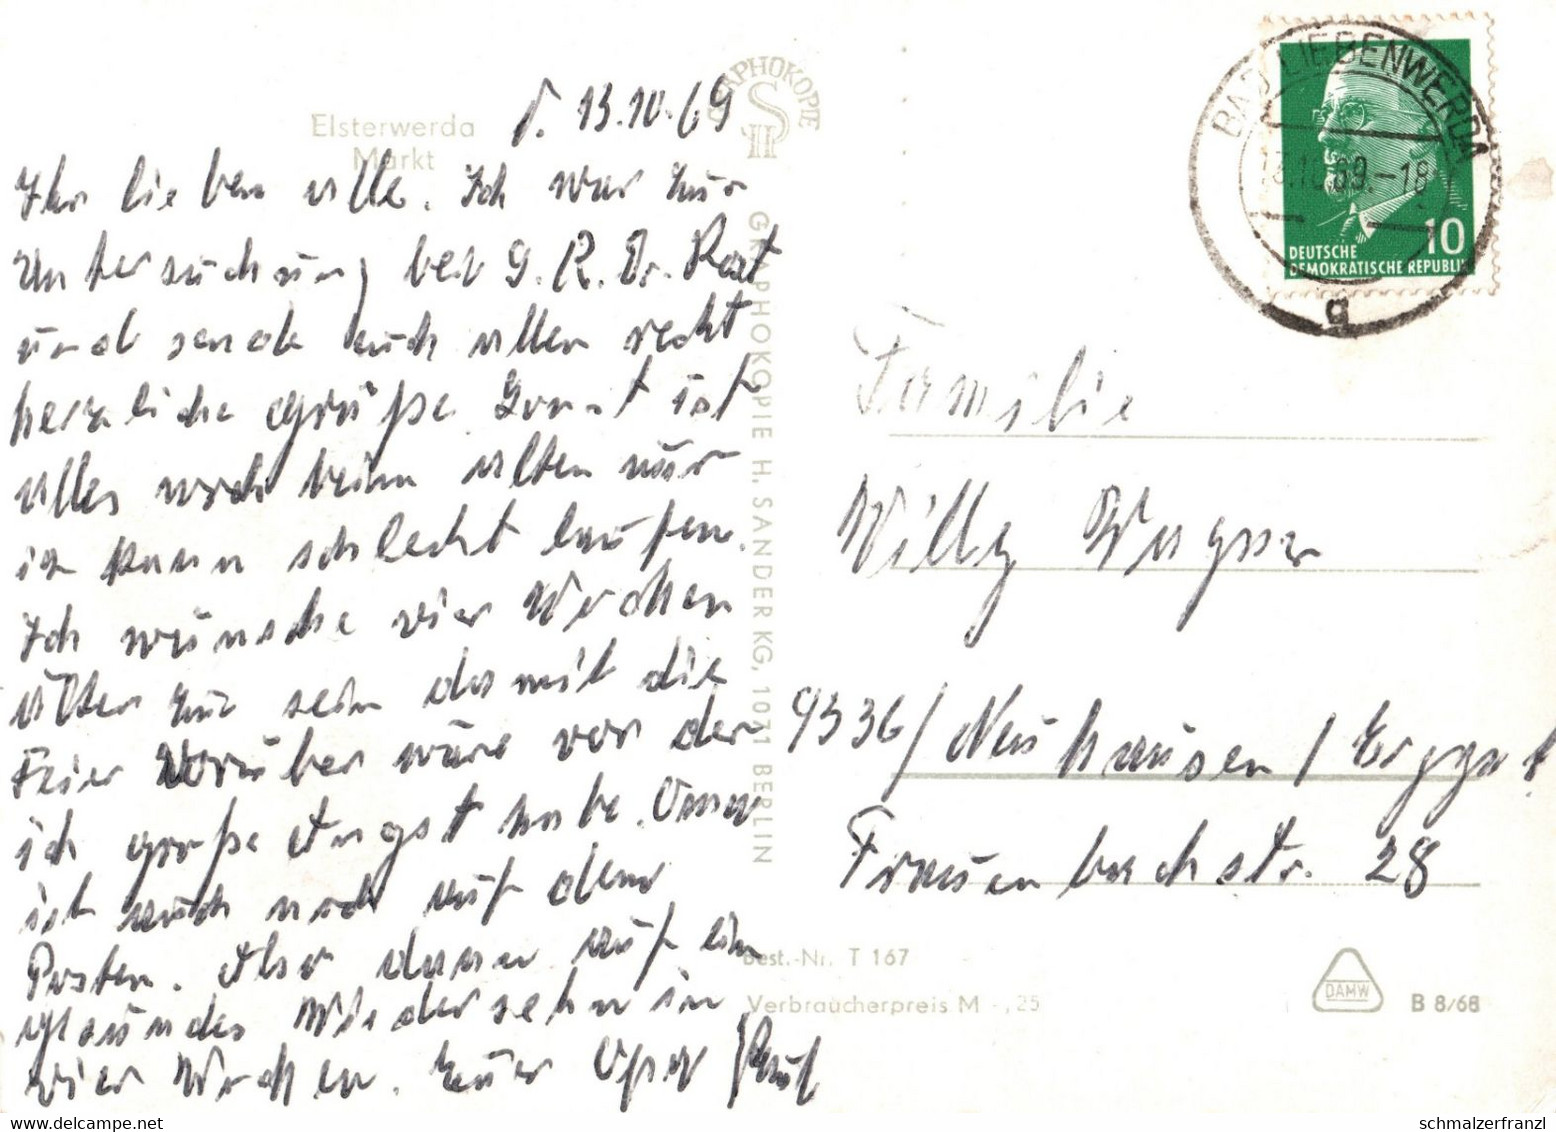 Elsterwerda
Markt
d. 13.10.69
Ihr lieben alle. Ich war zur
Untersuchung bei G. R. Dr. Rat
und sende euch allen recht
herzliche Grüße. Sonst ist
alles noch beim alten nur
ich kann schlecht laufen.
Ich wünsche vier Wochen
älter zu sein damit die
Feier vorüber wäre vor der
ich große Angst habe. Oma
ist auch noch auf dem
Posten. Also dann auf ein
gesundes Wiedersehn in
vier Wochen. Euer Opa Paul
GRAPHOKOPIE
SH
GRAPHOKOPIE H. SANDER KG, 1071 BERLIN
BAD LIEBENWERDA
13.10.69.-18
a
10
DEUTSCHE
DEMOKRATISCHE REPUBLIK
Familie
Willy Wagner
9336/Neuhausen/Erzgeb
Frauenbachstr. 28
Best.-Nr. T 167
Verbraucherpreis M -,25
DAMW
B 8/68
www.delcampe.net
schmalzerfranzl